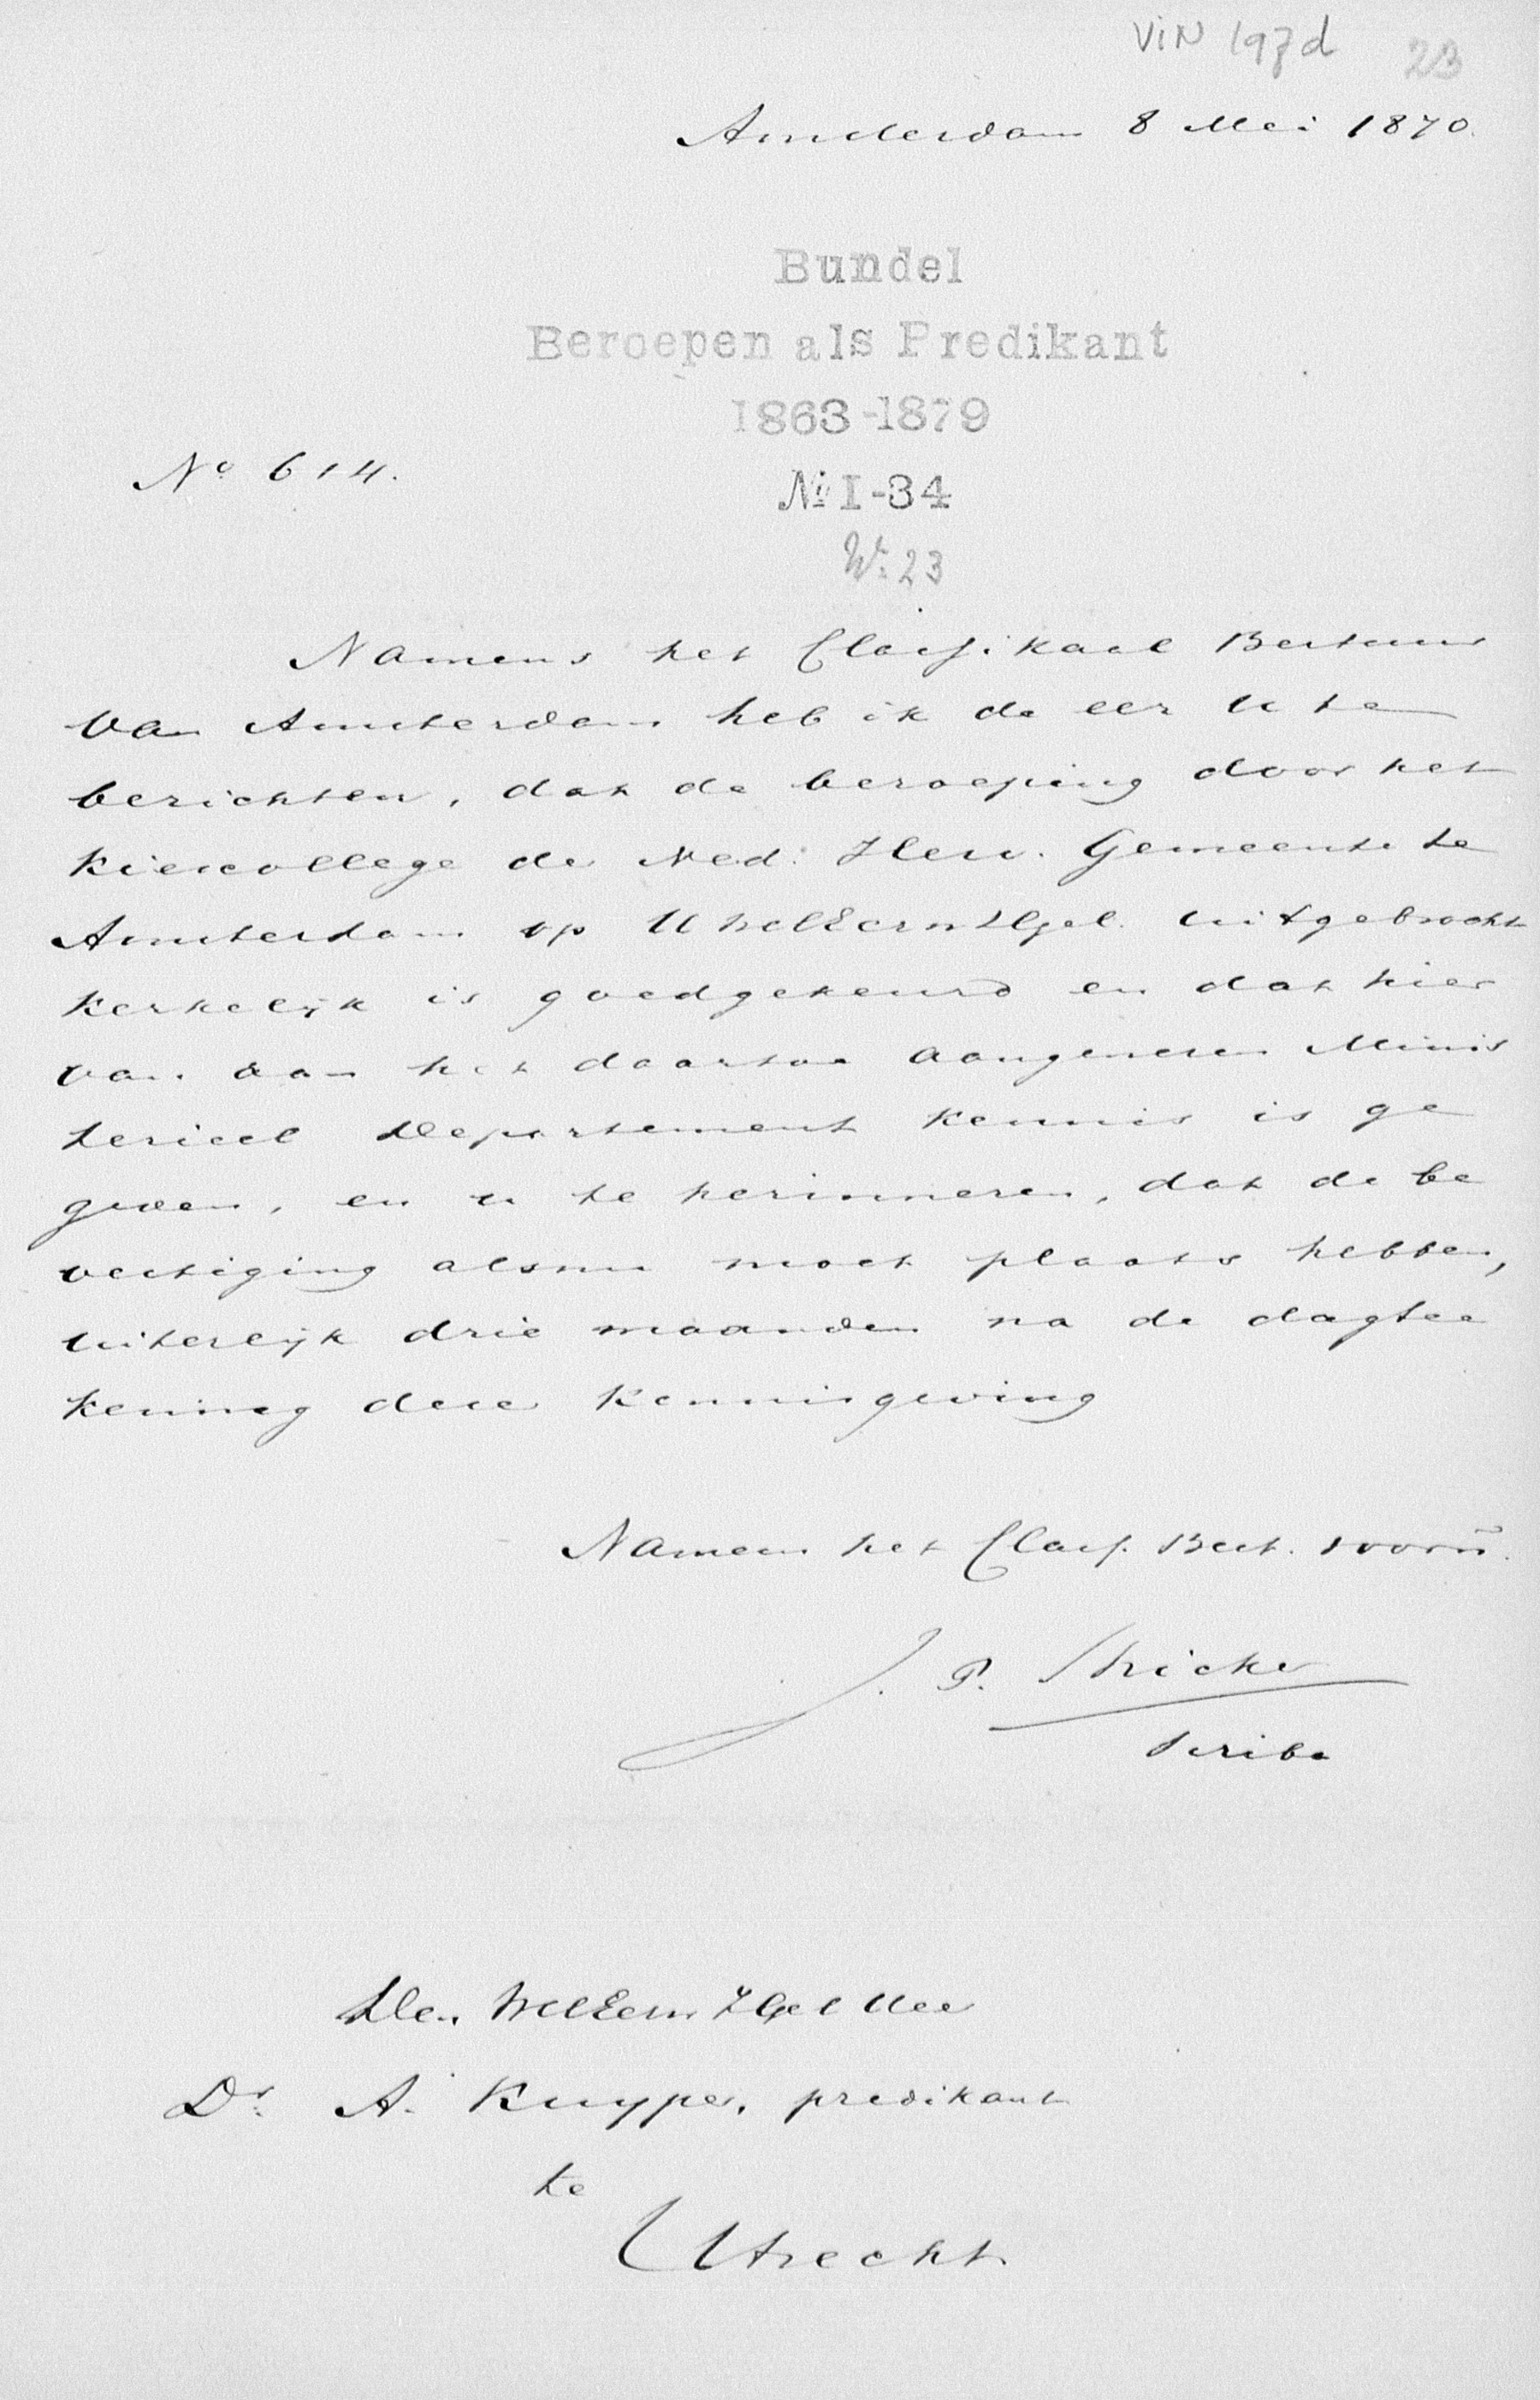 ViN 197d 23
Amsterdam 8 Mei 1870.
Bundel
Beroepen als Predikant
1863-1879
No I-34
No 614.
23
Namens het Classikaal Bestuur
van Amsterdam heb ik de eer U te
berichten, dat de beroeping door het
Kiescollege der Ned. Herv. Gemeente te
Amsterdam op UWelEerwZGel. uitgebracht
Kerkelijk is goedgekeurd en dat hier
van aan het daartoe aangewezen Minis
terieel Departement kennis is ge
geven, en u te herinneren, dat de be
vestiging alsnu moet plaats hebben,
uiterlijk drie maanden na de dagtee
kening dezer Kennisgeving
Namens het Class. Best. voorn̄.
J. P. Stricker
Scriba
Den WelEerw ZGel Heer
Dr. A. Kuyper, predikant
te
Utrecht